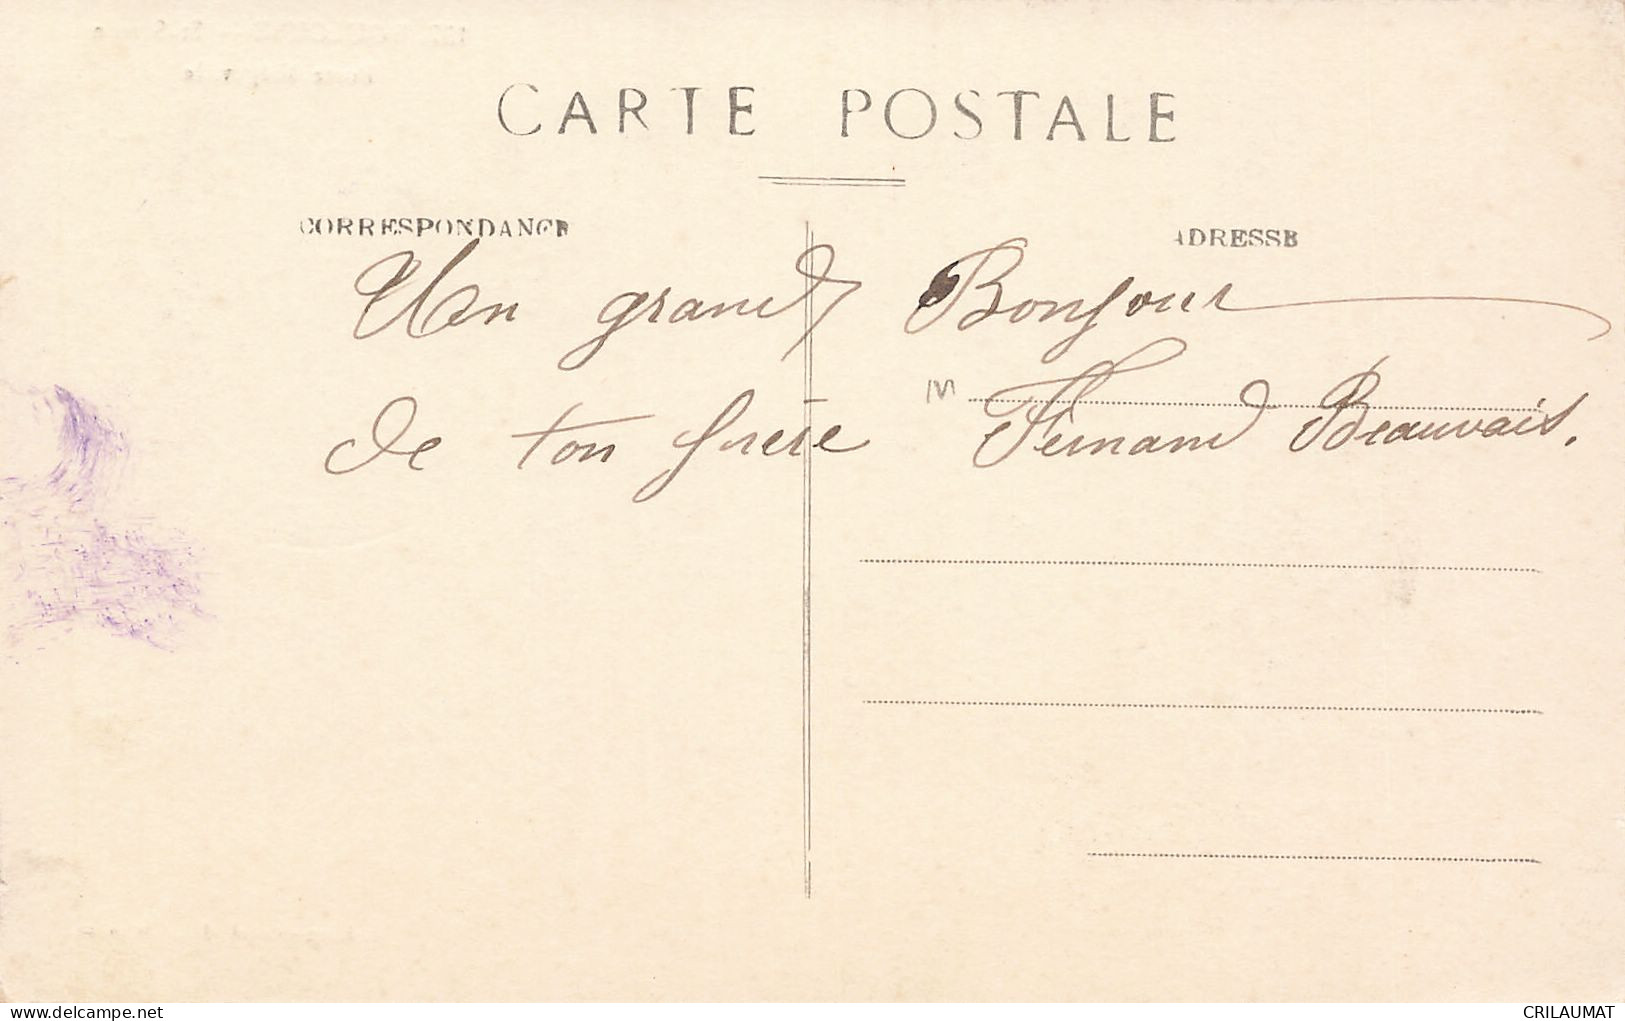 CARTE POSTALE
CORRESPONDANCE
ADRESSE
Un grand Bonjour
de ton frère Fernand Beauvais.
M
delcampe.net
CRILAUMAT